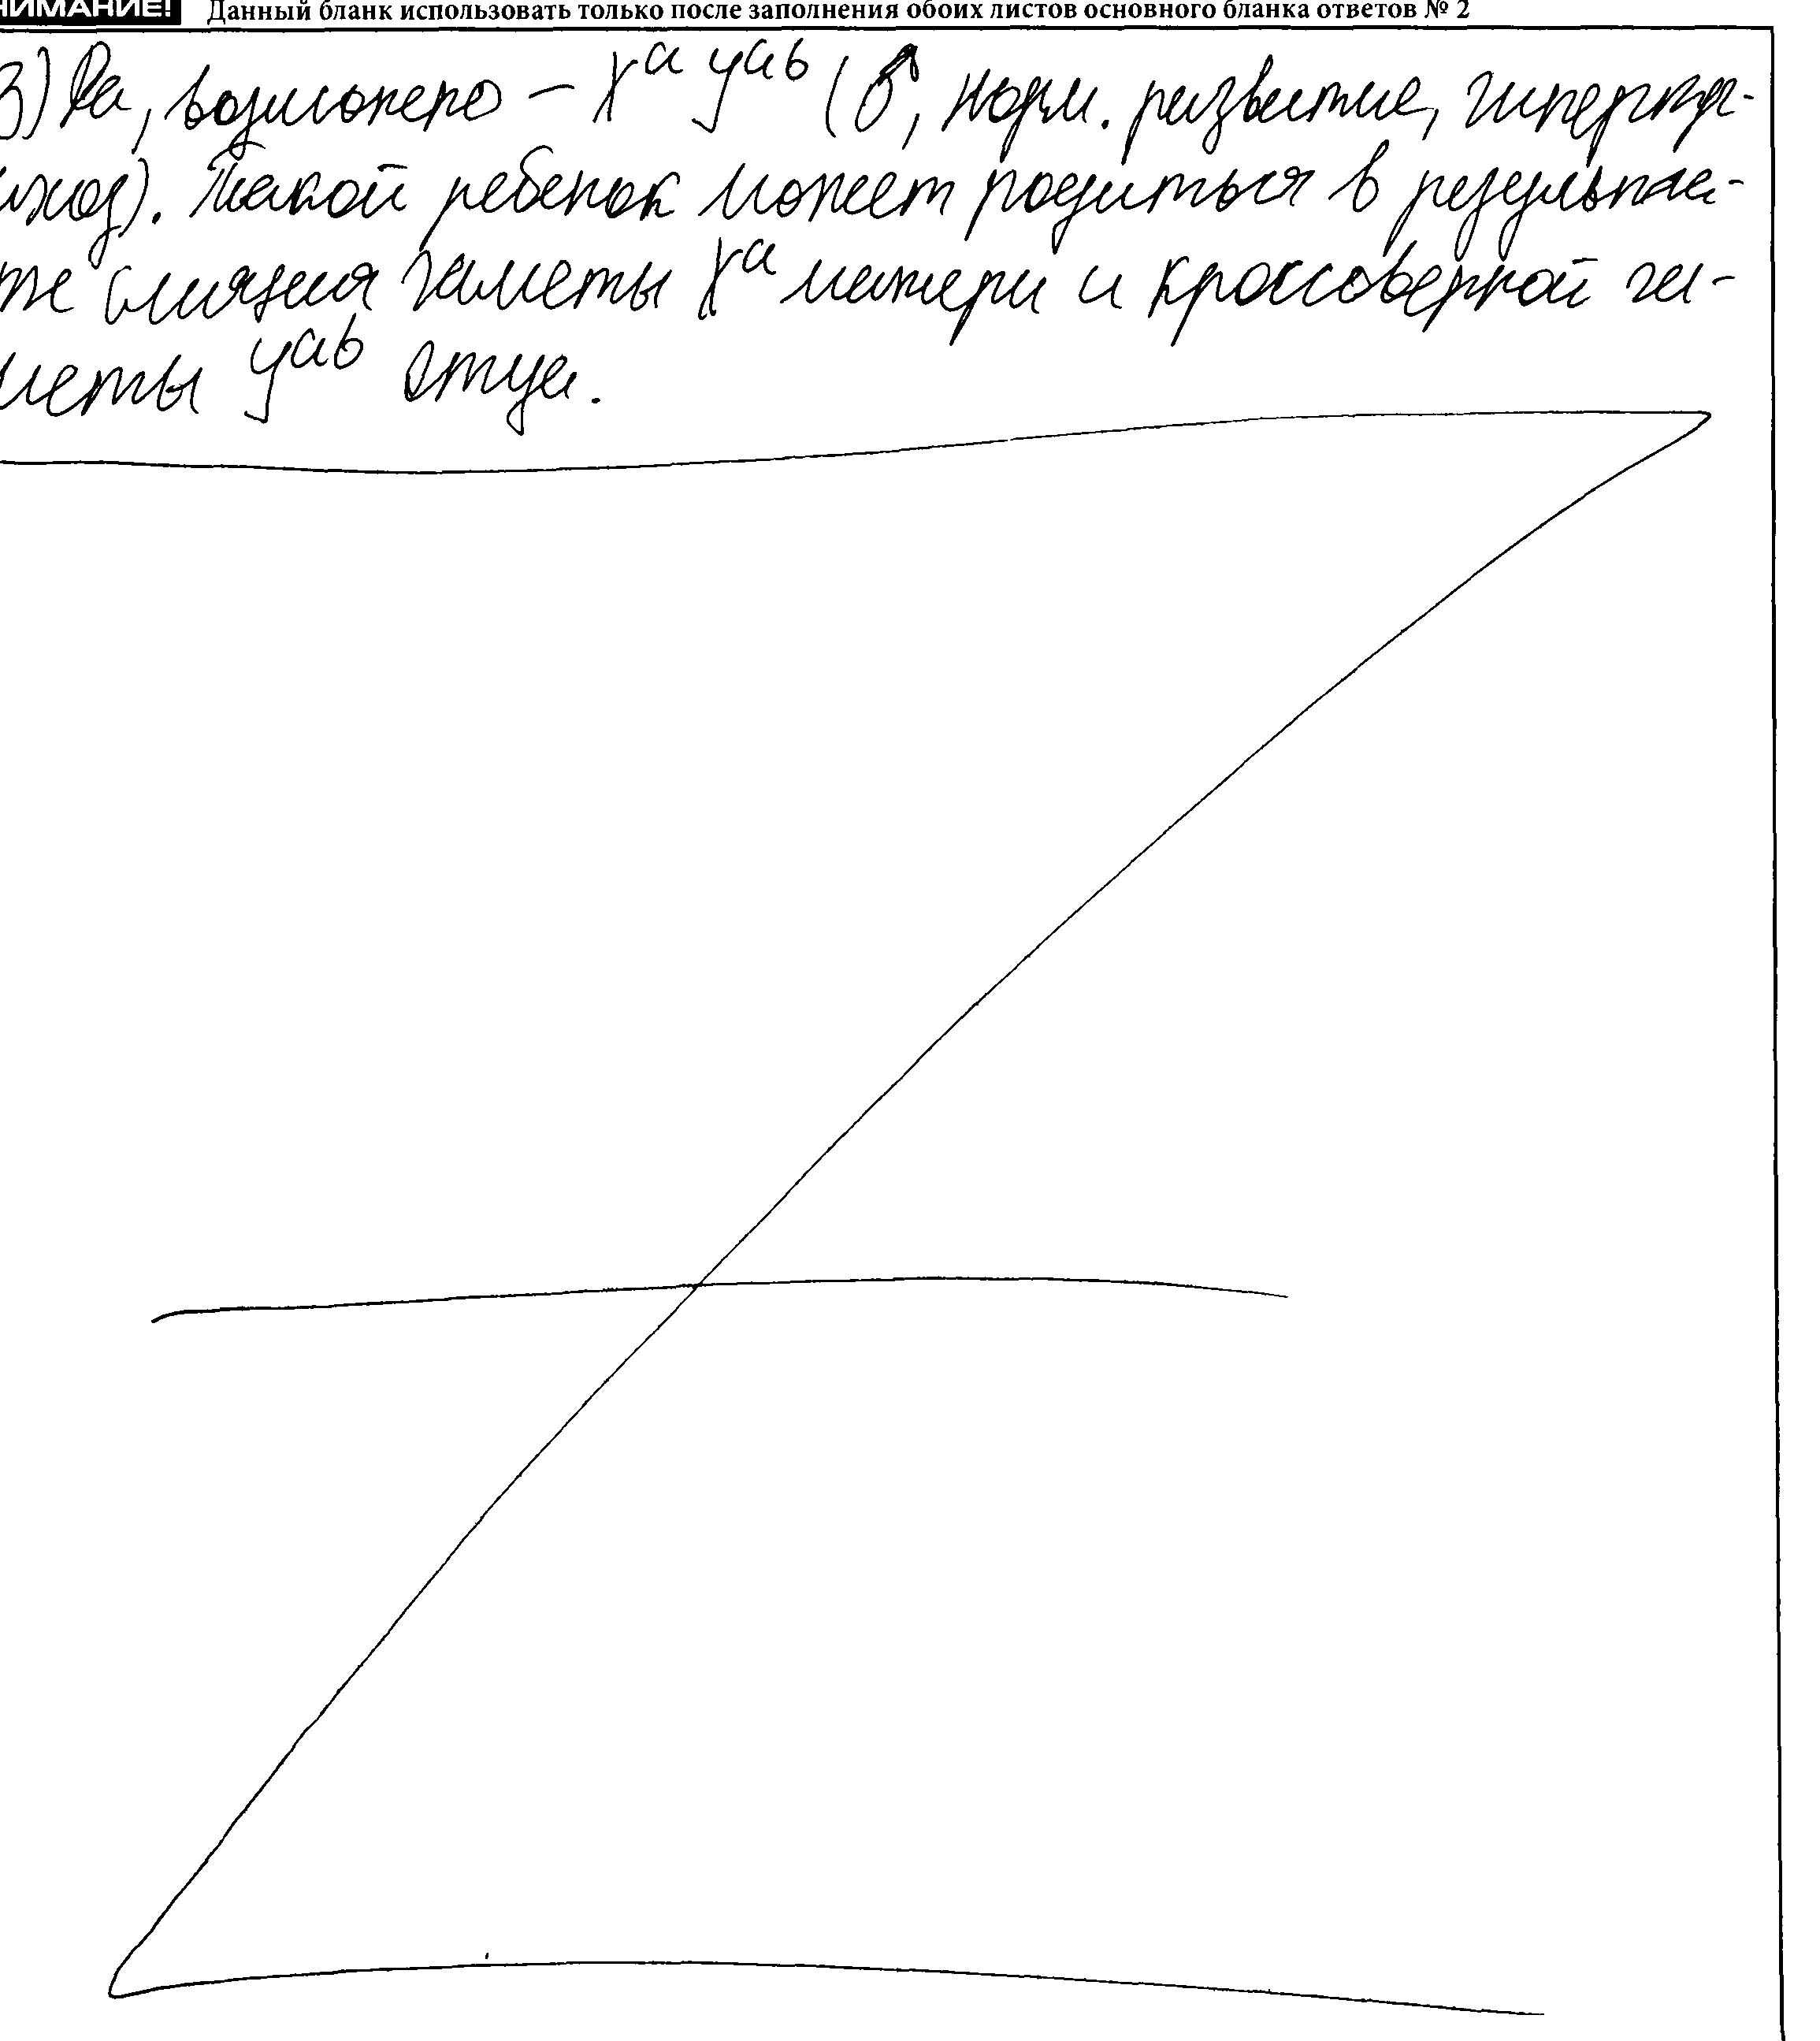 НИМАНИЕ! Данный бланк использовать только после заполнения обоих листов основного бланка ответов № 2
3) Да, возможно – Xᵃ Yᵃᵇ (♂, норм. развитие,
. Такой ребенок может родиться в результа-
те слияния гаметы Xᵃ матери и кроссоверной га-
меты Yᵃᵇ отца.